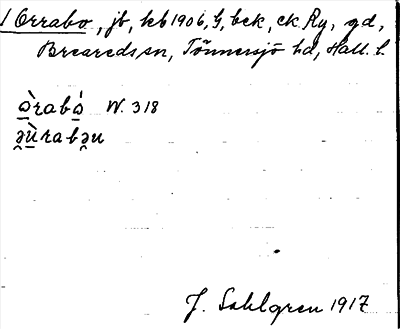 1 Orrabo, jb, kb 1906, G, bck, ck Ry, gd,
Breareds sn, Tönnersjö hd, Hall. l.
ò̱rabó̱ W. 318
ə̯ùrabə̯u
J. Sahlgren 1917